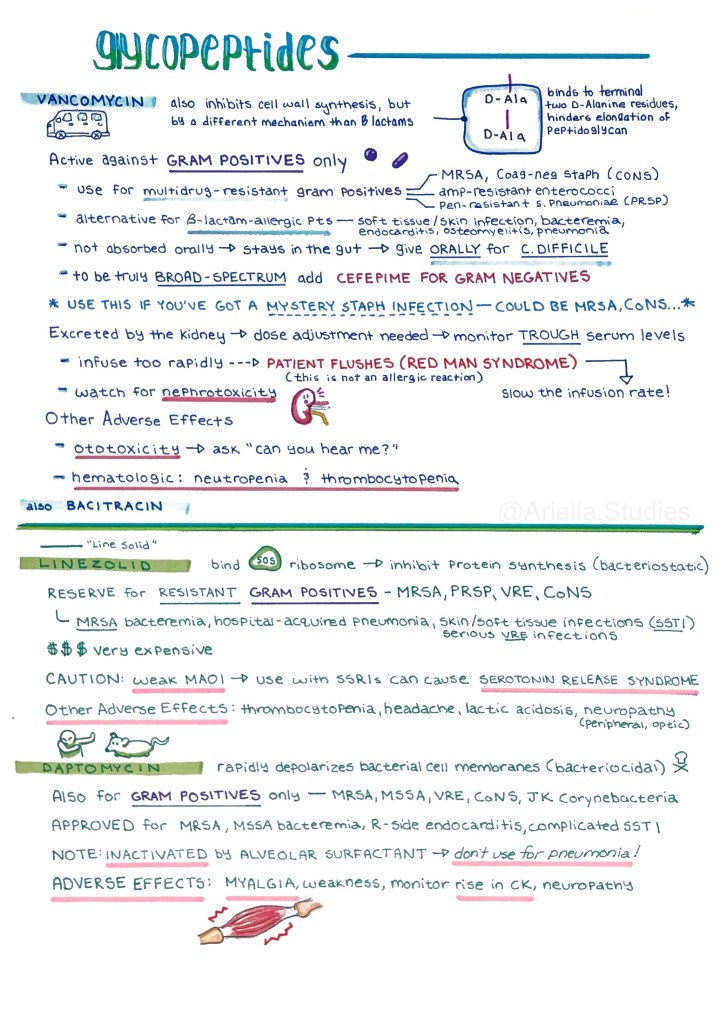 glycopeptides
VANCOMYCIN
also inhibits cell wall synthesis, but
by a different mechanism than B lactams
D-Ala
D-Ala
binds to terminal
two D-Alanine residues,
hinders elongation of
peptidoglycan
Active against GRAM POSITIVES only
- use for multidrug-resistant gram positives
MRSA, Coag-neg Staph (CONS)
amp-resistant enterococci
pen-resistant s. pneumoniae (PRSP)
- alternative for β-lactam-allergic pts — soft tissue/skin infection, bacteremia,
endocarditis, osteomyelitis, pneumonia
- not absorbed orally → stays in the gut → give ORALLY for C.DIFFICILE
- to be truly BROAD-SPECTRUM add CEFEPIME FOR GRAM NEGATIVES
* USE THIS IF YOU'VE GOT A MYSTERY STAPH INFECTION — COULD BE MRSA, CoNS...*
Excreted by the kidney → dose adjustment needed → monitor TROUGH serum levels
- infuse too rapidly ---> PATIENT FLUSHES (RED MAN SYNDROME)
(this is not an allergic reaction)
slow the infusion rate!
- watch for nephrotoxicity
Other Adverse Effects
- ototoxicity → ask "can you hear me?"
- hematologic: neutropenia & thrombocytopenia
also BACITRACIN
@Ariella.Studies
"Line Solid"
LINEZOLID
bind 50S ribosome → inhibit protein synthesis (bacteriostatic)
RESERVE for RESISTANT GRAM POSITIVES - MRSA, PRSP, VRE, CoNS
MRSA bacteremia, hospital-acquired pneumonia, skin/soft tissue infections (SSTI)
serious VRE infections
$$$ very expensive
CAUTION: weak MAOI → use with SSRIs can cause SEROTONIN RELEASE SYNDROME
Other Adverse Effects: thrombocytopenia, headache, lactic acidosis, neuropathy
(peripheral, optic)
DAPTOMYCIN
rapidly depolarizes bacterial cell membranes (bacteriocidal)
Also for GRAM POSITIVES only — MRSA, MSSA, VRE, CoNS, JK Corynebacteria
APPROVED for MRSA, MSSA bacteremia, R-side endocarditis, complicated SSTI
NOTE: INACTIVATED by ALVEOLAR SURFACTANT → don't use for pneumonia!
ADVERSE EFFECTS: MYALGIA, weakness, monitor rise in CK, neuropathy